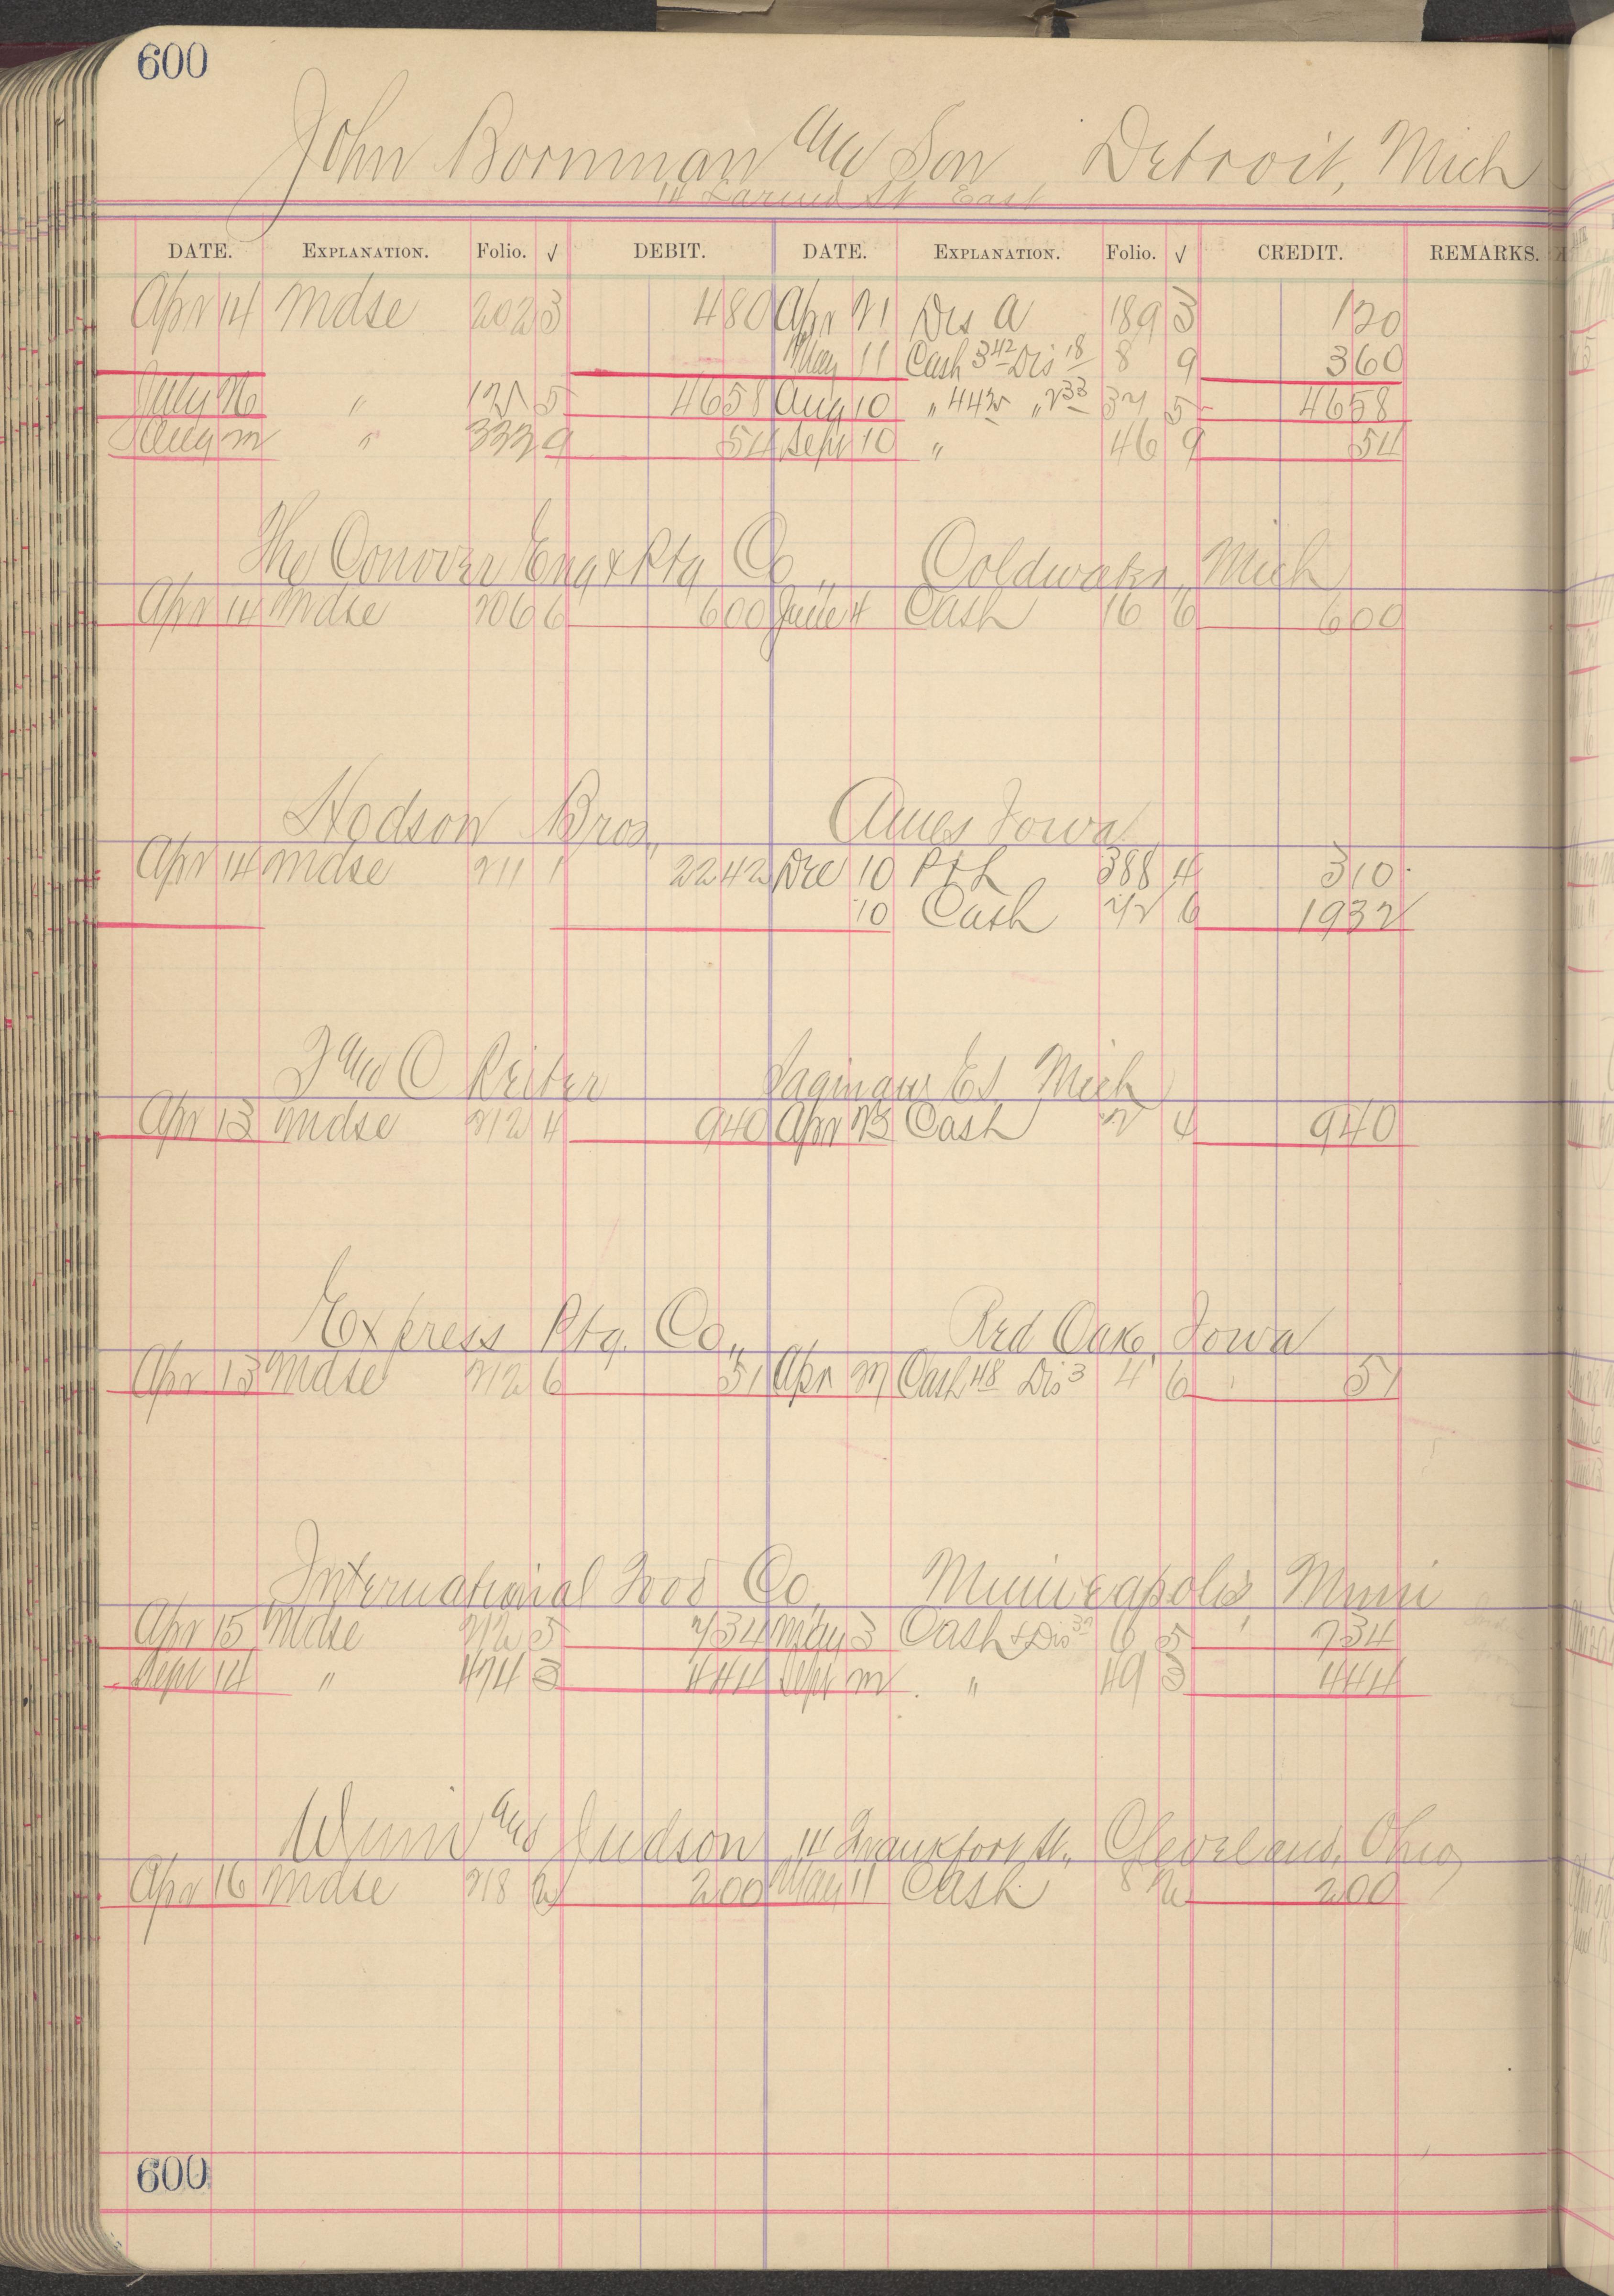 600
John Bornman and Son Detroit, Mich
111 Larned St East
DATE. EXPLANATION. Folio. √ DEBIT. DATE. EXPLANATION. Folio. √ CREDIT. REMARKS.
Apr 14 Mdse 202 3 480 Apr 21 Dis A 189 3 120
May 11 Cash 3 42 Dis 18 8 9 360
July 26 " 5 4658 Aug 10 " 44 " 2 33 5 4658
Aug " 332 9 54 Sept 10 " 46 9 54
The Conover Eng & Ptg Co., Coldwater, Mich
Apr 14 Mdse 206 6 600 June 4 Cash 16 6 600
Hodson Bros., Ames Iowa
Apr 14 Mdse 211 1 2242 Dec 10 P & L 388 4 310
10 Cash 6 1932
F and C Reiter Saginaw E.S. Mich
Apr 13 Mdse 212 4 940 Apr 23 Cash 2 4 940
Express Ptg. Co., Red Oak, Iowa
Apr 13 Mdse 212 6 51 Apr 27 Cash 48 Dis 3 4 6 51
International Food Co, Minneapolis Minn
Apr 15 Mdse 212 5 734 May 3 Cash & Dis 37 6 5 734
Sept 14 " 474 3 444 Sept " 49 3 444
Winn and Judson 111 Frankfort St., Cleveland, Ohio
Apr 16 Mdse 218 2 200 May 11 Cash 8 2 200
600